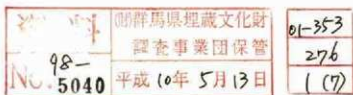 資料
98-
No. 5040
(財)群馬県埋蔵文化財
調査事業団保管
平成10年5月13日
01-353
276
1(7)